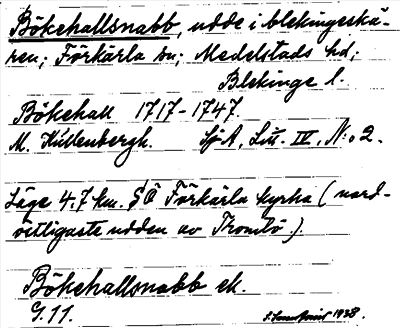 Bökehallsnabb, udde i blekingeskä-
ren; Förkärla sn; Medelstads hd;
Blekinge l.
Bökehall 1717-1747.
M. Hüllenbergh. Sj A, Litt. IV, N:o 2.
Läge 4.7 km. SÖ Förkärla kyrka (nord-
västligaste udden av Tromtö.).
Bökehallsnabb ek.
G. 11. 1938.